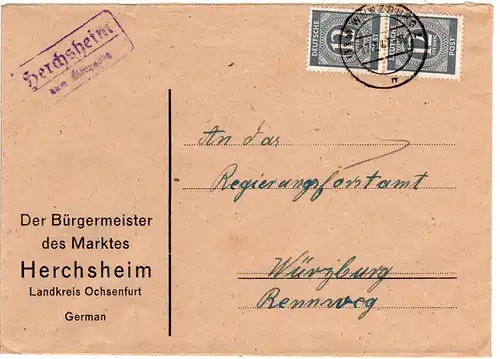 Herchsheim
DEUTSCHE
POST
12
12
WÜRZBURG 2
An das
Regierungsforstamt
Würzburg
Rennweg
Der Bürgermeister
des Marktes
Herchsheim
Landkreis Ochsenfurt
German